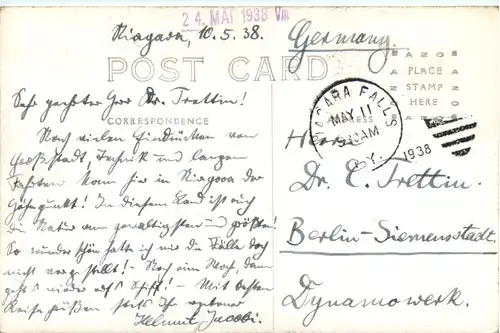 24. MAI 1938 VIII
Niagara, 10.5.38.
Germany.
POST CARD
AZO
PLACE
STAMP
HERE
AZO
CORRESPONDENCE
ADDRESS
NIAGARA FALLS
MAY 11
930AM
N.Y.
1938
Sehr geehrter Herr Dr. Trettin!
Nach vielen Eindrücken von
Großstadt, Technik und langen
Fahrten kam hier in Niagara der
Höhepunkt! In diesem Land ist auch
die Natur am gewaltigsten und größten!
So wunderschön hatte ich mir die Fälle doch
nicht vorgestellt! – Noch eine Woche, dann
geht's wieder aufs Schiff! – Mit besten
Reisegrüßen stets Ihr ergebener
Helmut Jacobi.
Herrn
Dr. C. Trettin
Berlin-Siemensstadt
Dynamowerk.